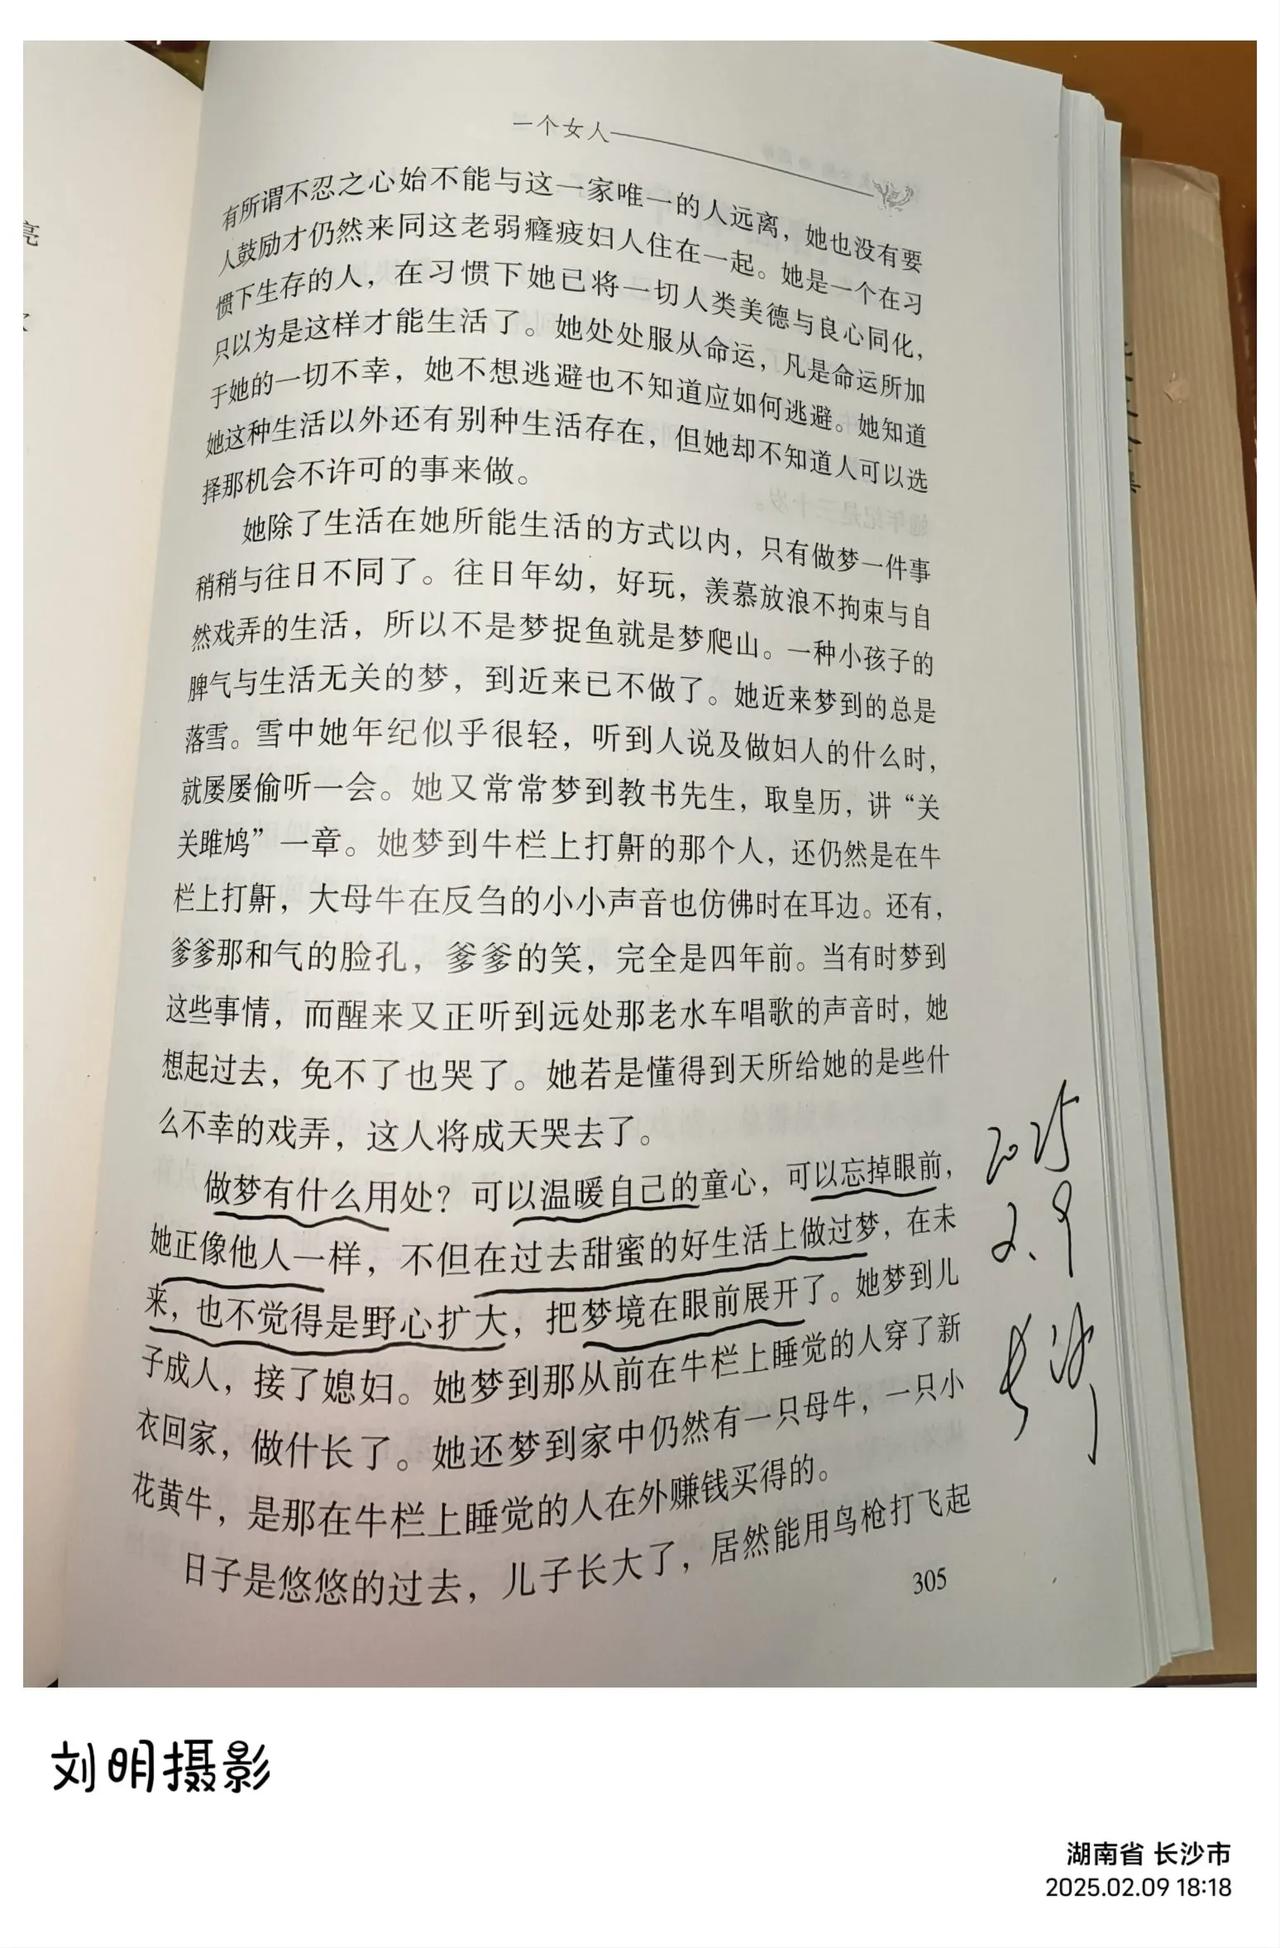 一个女人
有所谓不忍之心始不能与这一家唯一的人远离，她也没有要
人鼓励才仍然来同这老弱癃疲妇人住在一起。她是一个在习
惯下生存的人，在习惯下她已将一切人类美德与良心同化，
只以为是这样才能生活了。她处处服从命运，凡是命运所加
于她的一切不幸，她不想逃避也不知道应如何逃避。她知道
她这种生活以外还有别种生活存在，但她却不知道人可以选
择那机会不许可的事来做。
她除了生活在她所能生活的方式以内，只有做梦一件事
稍稍与往日不同了。往日年幼，好玩，羡慕放浪不拘束与自
然戏弄的生活，所以不是梦捉鱼就是梦爬山。一种小孩子的
脾气与生活无关的梦，到近来已不做了。她近来梦到的总是
落雪。雪中她年纪似乎很轻，听到人说及做妇人的什么时，
就屡屡偷听一会。她又常常梦到教书先生，取皇历，讲“关
关雎鸠”一章。她梦到牛栏上打鼾的那个人，还仍然是在牛
栏上打鼾，大母牛在反刍的小小声音也仿佛时在耳边。还有，
爹爹那和气的脸孔，爹爹的笑，完全是四年前。当有时梦到
这些事情，而醒来又正听到远处那老水车唱歌的声音时，她
想起过去，免不了也哭了。她若是懂得到天所给她的是些什
么不幸的戏弄，这人将成天哭去了。
做梦有什么用处？可以温暖自己的童心，可以忘掉眼前，
她正像他人一样，不但在过去甜蜜的好生活上做过梦，在未
来，也不觉得是野心扩大，把梦境在眼前展开了。她梦到儿
子成人，接了媳妇。她梦到那从前在牛栏上睡觉的人穿了新
衣回家，做什长了。她还梦到家中仍然有一只母牛，一只小
花黄牛，是那在牛栏上睡觉的人在外赚钱买得的。
日子是悠悠的过去，儿子长大了，居然能用鸟枪打飞起
305
2025
2.9
长沙
亮
刘明摄影
湖南省 长沙市
2025.02.09 18:18